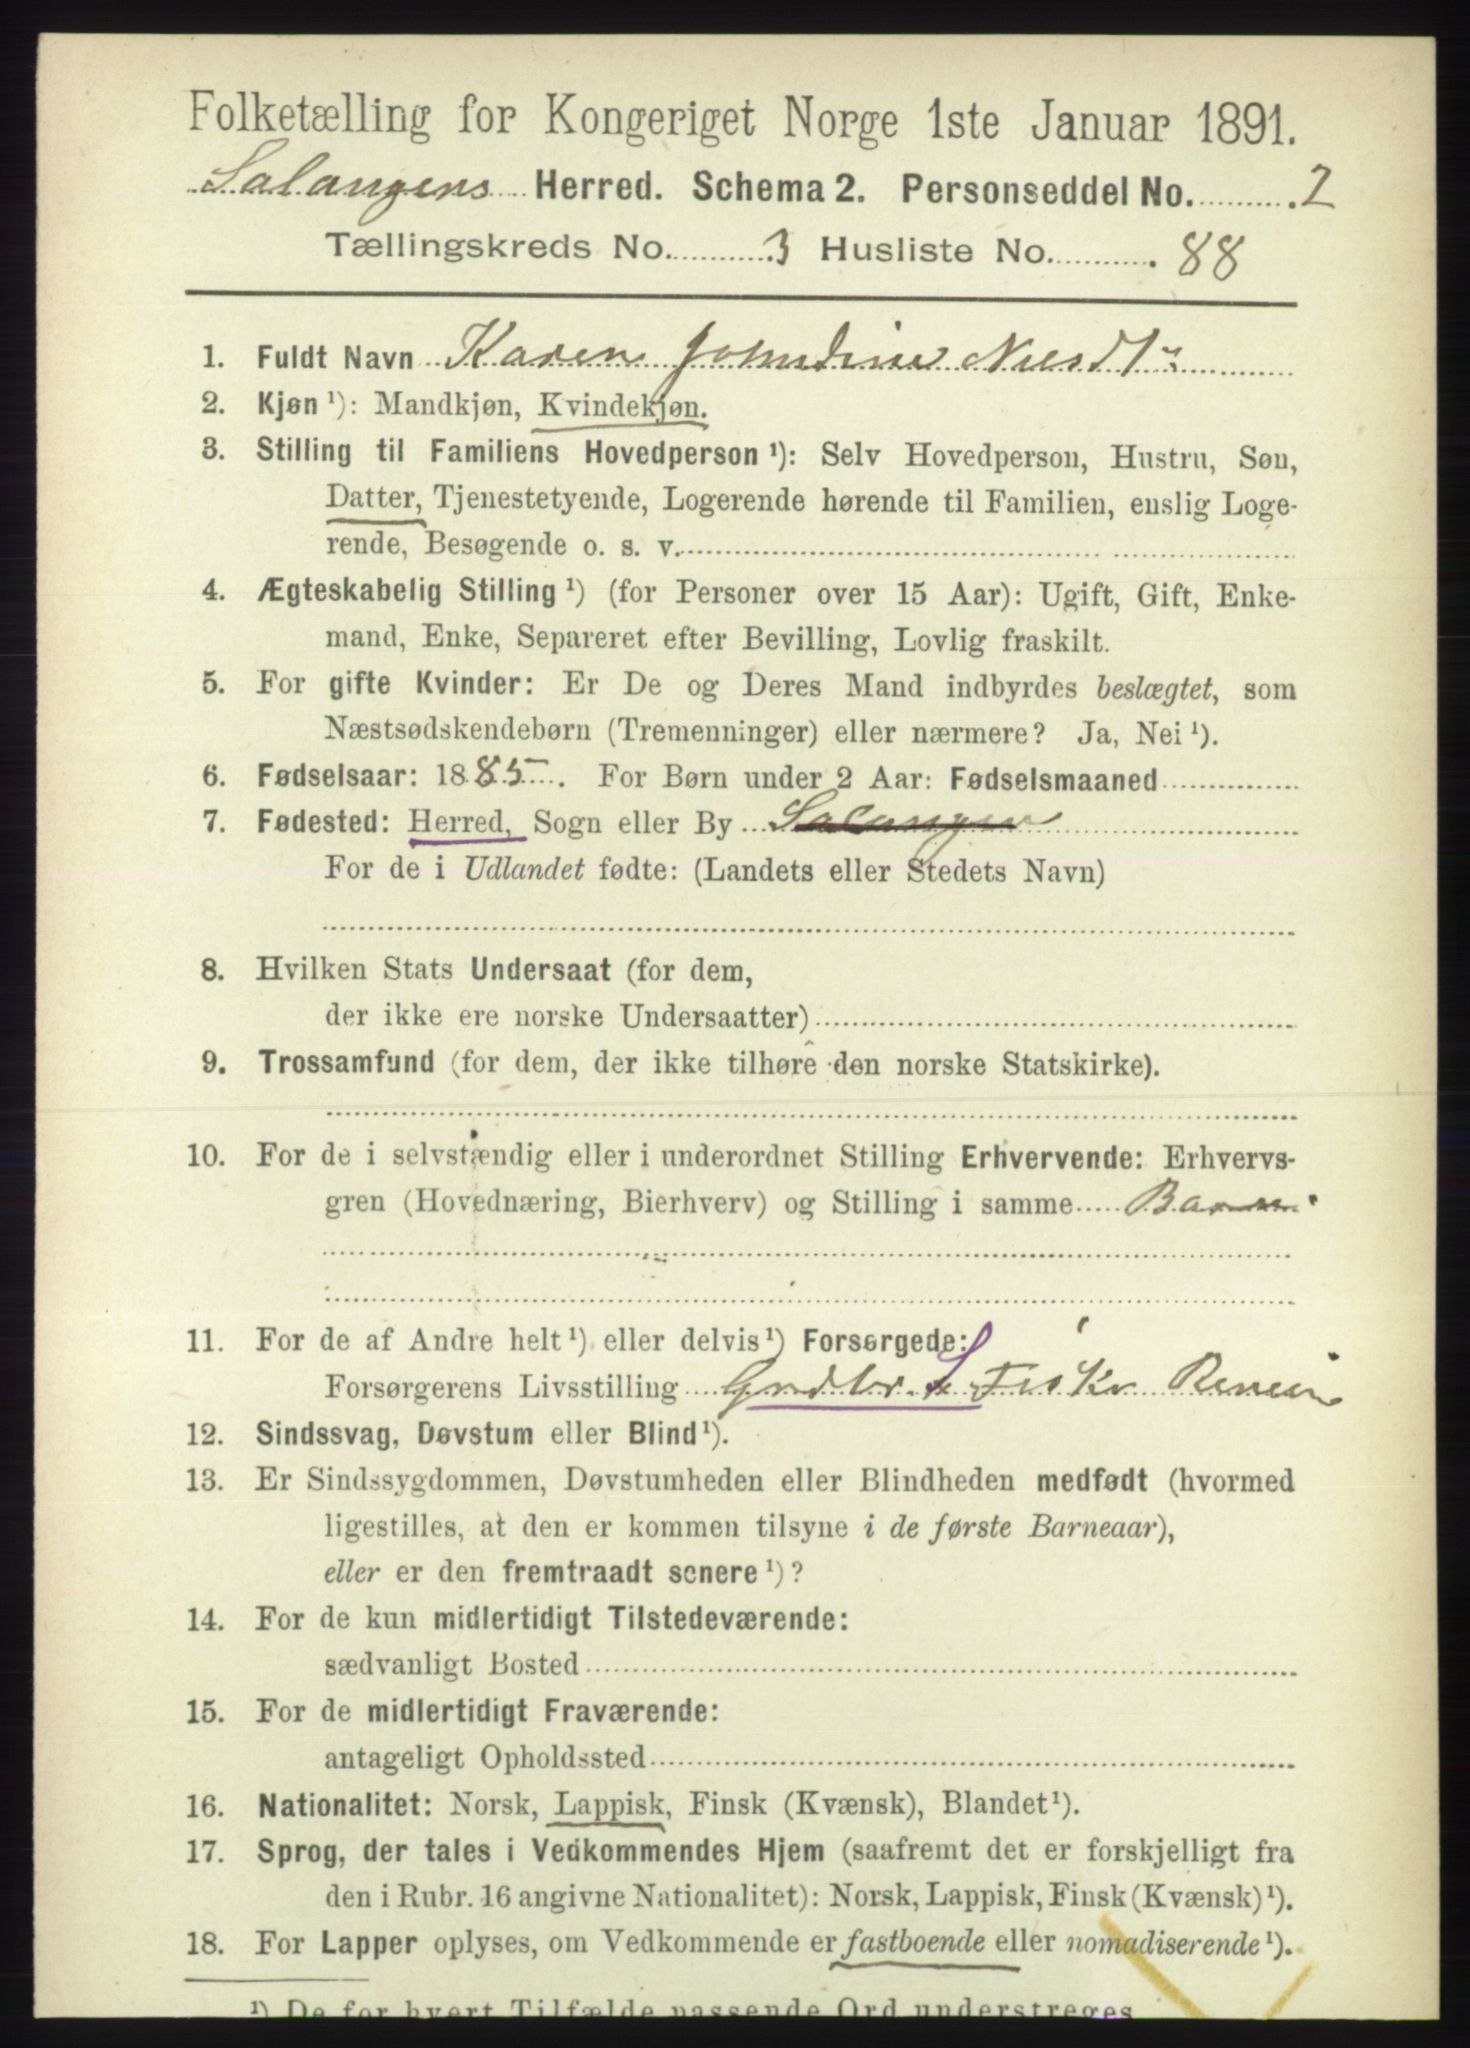 Folketælling for Kongeriget Norge 1ste Januar 1891.
Salangens Herred. Schema 2. Personseddel No. 2
Tællingskreds No. 3 Husliste No. 88
1. Fuldt Navn Karen Johndine Nilsdtr
2. Kjøn ¹): Mandkjøn, Kvindekjøn.
3. Stilling til Familiens Hovedperson ¹): Selv Hovedperson, Hustru, Søn,
Datter, Tjenestetyende, Logerende hørende til Familien, enslig Loge-
rende, Besøgende o. s. v.
4. Ægteskabelig Stilling ¹) (for Personer over 15 Aar): Ugift, Gift, Enke-
mand, Enke, Separeret efter Bevilling, Lovlig fraskilt.
5. For gifte Kvinder: Er De og Deres Mand indbyrdes beslægtet, som
Næstsødskendebørn (Tremenninger) eller nærmere? Ja, Nei ¹).
6. Fødselsaar: 1885. For Børn under 2 Aar: Fødselsmaaned
7. Fødested: Herred, Sogn eller By Salangen
For de i Udlandet fødte: (Landets eller Stedets Navn)
8. Hvilken Stats Undersaat (for dem,
der ikke ere norske Undersaatter)
9. Trossamfund (for dem, der ikke tilhøre den norske Statskirke).
10. For de i selvstændig eller i underordnet Stilling Erhvervende: Erhvervs-
gren (Hovednæring, Bierhverv) og Stilling i samme
11. For de af Andre helt ¹) eller delvis ¹) Forsørgede:
Forsørgerens Livsstilling Grdbr. S Fisker
12. Sindssvag, Døvstum eller Blind ¹).
13. Er Sindssygdommen, Døvstumheden eller Blindheden medfødt (hvormed
ligestilles, at den er kommen tilsyne i de første Barneaar),
eller er den fremtraadt senere ¹)?
14. For de kun midlertidigt Tilstedeværende:
sædvanligt Bosted
15. For de midlertidigt Fraværende:
antageligt Opholdssted
16. Nationalitet: Norsk, Lappisk, Finsk (Kvænsk), Blandet ¹).
17. Sprog, der tales i Vedkommendes Hjem (saafremt det er forskjelligt fra
den i Rubr. 16 angivne Nationalitet): Norsk, Lappisk, Finsk (Kvænsk) ¹).
18. For Lapper oplyses, om Vedkommende er fastboende eller nomadiserende ¹).
¹) De for hvert Tilfælde passende Ord understreges